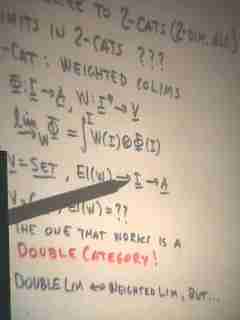 TO 2-CATS (2-DIM. ALG)
LIMITS IN 2-CATS ???
-CAT: WEIGHTED COLIMS
Φ: I → A, W: I^op → V
lim_W Φ = ∫^I W(I) ⊗ Φ(I)
V = SET, El(W) → I → A
El(W) = ??
THE ONE THAT WORKS IS A
DOUBLE CATEGORY!
DOUBLE LIM ↔ WEIGHTED LIM, BUT...